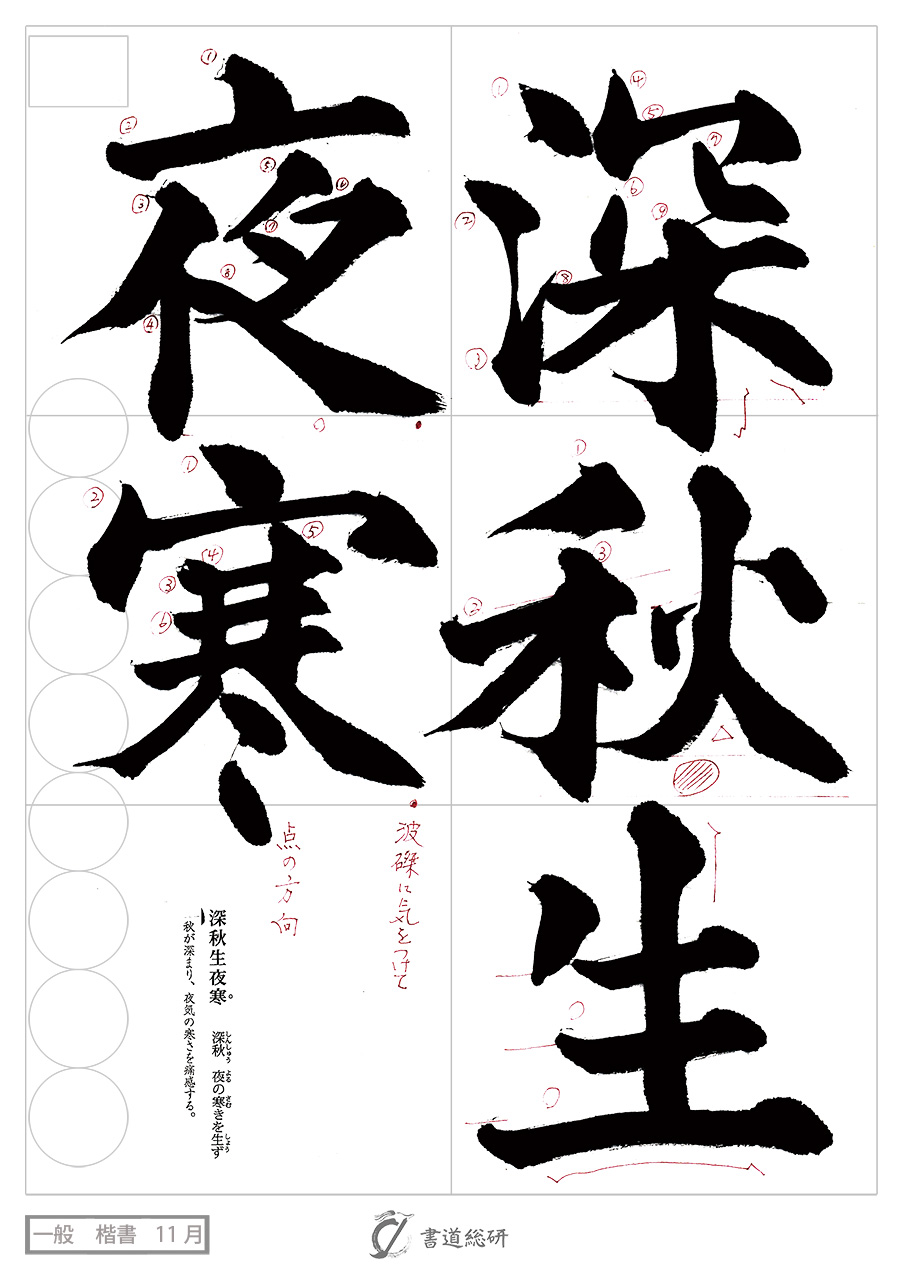 深秋生
夜寒
波磔に気をつけて
点の方向
深秋生夜寒。 深秋 夜の寒きを生ず
しんしゅう よる さむ しょう
秋が深まり、夜気の寒さを痛感する。
① ② ③ ④ ⑤ ⑥ ⑦ ⑧ ⑨
① ② ③
① ② ③ ④ ⑤ ⑥ ⑦ ⑧
① ② ③ ④ ⑤ ⑥
一般 楷書 11月
書道総研